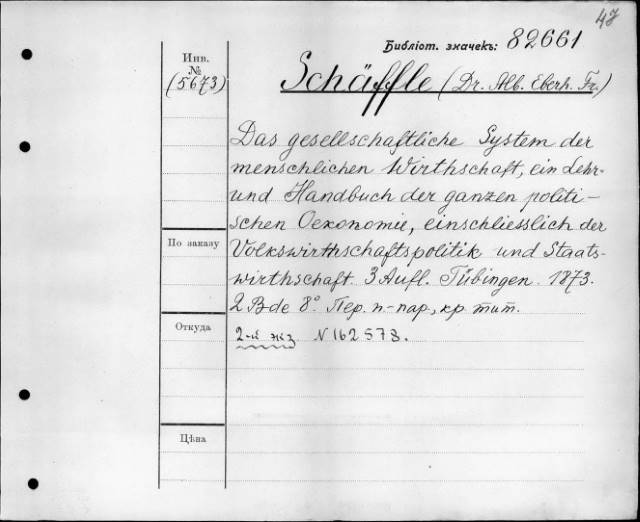 47
Библіот. значекъ: 82661
Инв.
№
(5673)
Schäffle (Dr. Alb. Eberh. Fr.)
Das gesellschaftliche System der
menschlichen Wirthschaft, ein Lehr-
und Handbuch der ganzen politi-
schen Oekonomie, einschliesslich der
По заказу
Volkswirthschaftspolitik und Staats-
wirthschaft. 3 Aufl. Tübingen. 1873.
2 Bde 8°. Пер. п-пар, кр тит.
Откуда
2-й экз N 162578.
Цѣна